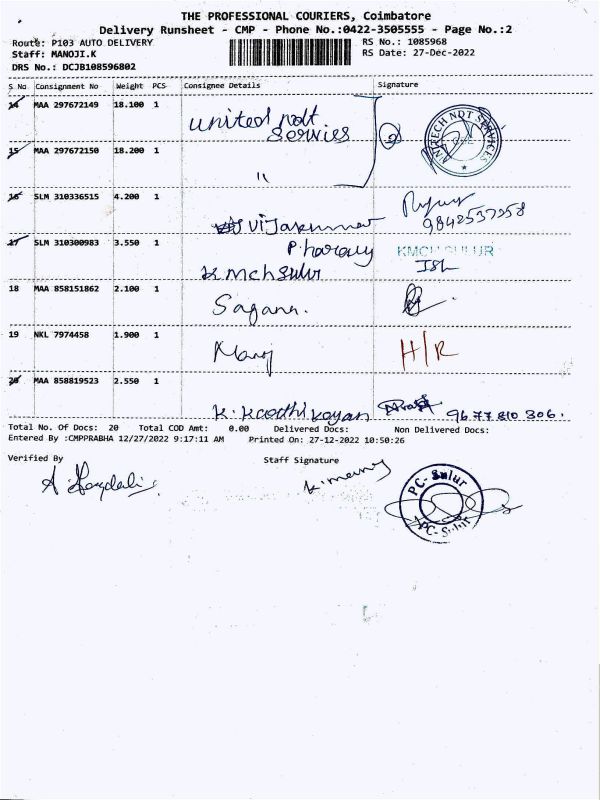 THE PROFESSIONAL COURIERS, Coimbatore
Delivery Runsheet - CMP - Phone No.:0422-3505555 - Page No.:2
Route: P103 AUTO DELIVERY
RS No.: 1085968
Staff: MANOJI.K
RS Date: 27-Dec-2022
DRS No.: DCJB108596802
S No Consignment No Weight PCS Consignee Details Signature
14 MAA 297672149 18.100 1 united ndt
Servies
15 MAA 297672150 18.200 1 "
16 SLM 310336515 4.200 1
Vijakumar 9842537258
17 SLM 310300983 3.550 1
KMCH SULUR
K mch Sulur
18 MAA 858151862 2.100 1 Sagana.
19 NKL 7974458 1.900 1 Manoj H/R
20 MAA 858819523 2.550 1
K. Kaodhikeyan 9677810306.
Total No. Of Docs: 20 Total COD Amt: 0.00 Delivered Docs: Non Delivered Docs:
Entered By :CMPPRABHA 12/27/2022 9:17:11 AM Printed On: 27-12-2022 10:50:26
Verified By Staff Signature
PC- Sulur